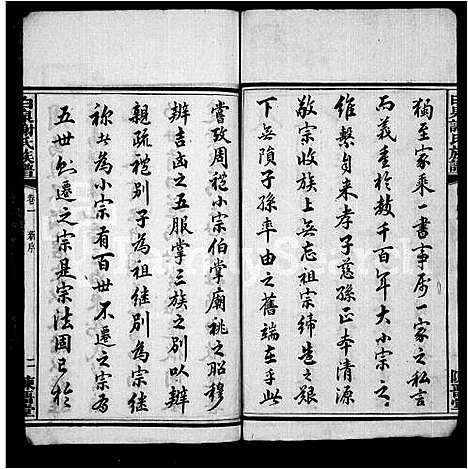 獨至家乘一書事屬一家之私言
而義重於敖千百年大小宗之
維繫自來孝子慈孫正本清源
敬宗收族上無忘祖宗締造之艱
下無隕子孫率由之舊端在乎此
嘗攷周禮小宗伯掌廟祧之昭穆
辨吉凶之五服掌三族之別以辨
親疏禮別子為祖繼別為宗繼
祢者為小宗有百世不遷之宗有
五世則遷之宗是宗法固已於
白泉謝氏族譜
卷一
新序
二